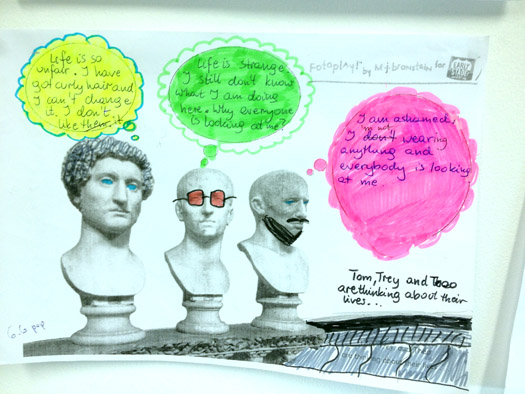 Life is so
unfair. I have
got curly hair and
I can't change
it. I don't
like them. it
Life is strange.
I still don't know
what I am doing
here. Why everyone
is looking at me?
Fotoplay! by Mjbronstein for
I am ashamed,
I 'm not wearing
anything and
everybody is looking
at me.
Tom, Trey and
are thinking about their
lives...